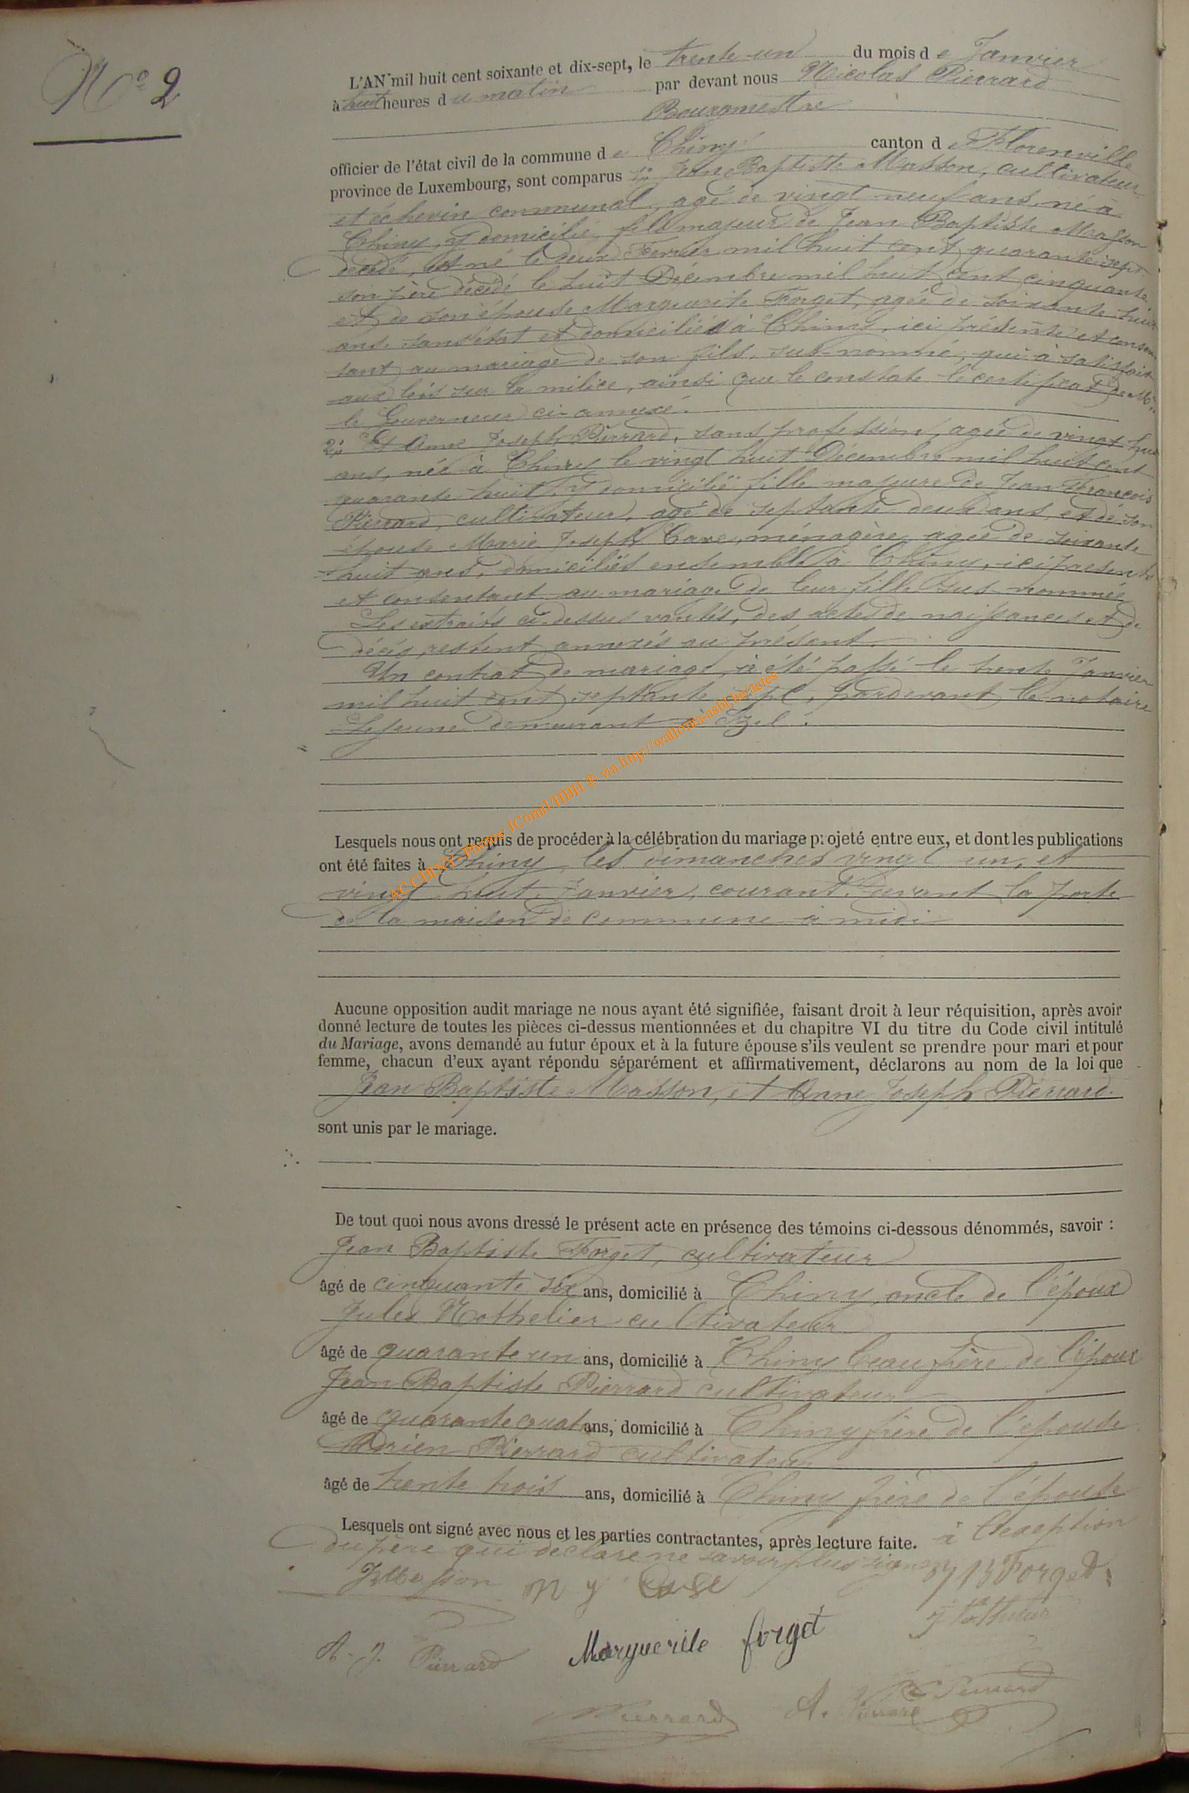 N° 2
L'AN mil huit cent soixante et dix-sept, le trente-un du mois de Janvier
à huit heures du matin par devant nous Nicolas Pierrard
Bourgmestre
officier de l'état civil de la commune de Chiny canton de Florenville
province de Luxembourg, sont comparus 1° Jean Baptiste Masson, cultivateur
et échevin communal, agé de vingt neuf ans, né à
Chiny, y domicilié, fils majeur de Jean Baptiste Masson
décédé, est né le deux Février mil huit cent quarante sept
son père décédé le huit Décembre mil huit cent cinquante
et de son épouse Marguerite Forget, agée de soixante
ans, sans état et domiciliée à Chiny, ici présente et consen
tant au mariage de son fils, sus nommé, qui à satisfait
aux lois sur la milice, ainsi que le constate le certificat de Mr
le Gouverneur ci-annexé.
2° Et Anne Joseph Pierrard, sans profession, agée de vingt huit
ans, née à Chiny le vingt huit Décembre mil huit cent
quarante huit, y domiciliée fille majeure de Jean François
Pierrard, cultivateur, agé de septante deux ans, et de son
épouse Marie Joseph Case, ménagère, agée de soixante
huit ans, domiciliés ensemble à Chiny, ici présents
et consentant au mariage de leur fille sus nommée
Les extraits ci-dessus vantés, des actes de naissances et de
décès, restent annexés au présent.
Un contrat de mariage à été passé le trente Janvier
mil huit cent septante sept, pardevant le notaire
Lejeune demeurant à Izel.
Lesquels nous ont requis de procéder à la célébration du mariage projeté entre eux, et dont les publications
ont été faites à Chiny les dimanches vingt un, et
vingt huit Janvier, courant, devant la porte
de la maison de commune à midi
Aucune opposition audit mariage ne nous ayant été signifiée, faisant droit à leur réquisition, après avoir
donné lecture de toutes les pièces ci-dessus mentionnées et du chapitre VI du titre du Code civil intitulé
du Mariage, avons demandé au futur époux et à la future épouse s'ils veulent se prendre pour mari et pour
femme, chacun d'eux ayant répondu séparément et affirmativement, déclarons au nom de la loi que
Jean Baptiste Masson, et Anne Joseph Pierrard.
sont unis par le mariage.
De tout quoi nous avons dressé le présent acte en présence des témoins ci-dessous dénommés, savoir :
Jean Baptiste Forget, cultivateur
âgé de cinquante six ans, domicilié à Chiny, oncle de l'époux
Jules Hothelier cultivateur
âgé de quarante un ans, domicilié à Chiny beau frère de l'époux
Jean Baptiste Pierrard cultivateur
âgé de quarante quat ans, domicilié à Chiny frère de l'épouse
Adrien Pierrard cultivateur
âgé de trente trois ans, domicilié à Chiny frère de l'épouse
Lesquels ont signé avec nous et les parties contractantes, après lecture faite. à l'exception
du père qui déclare ne savoir plus signer
J B Forget
JBMasson M J Case
A. J. Pierrard Marguerite forget
Pierrard A. Pierrard Pierrard